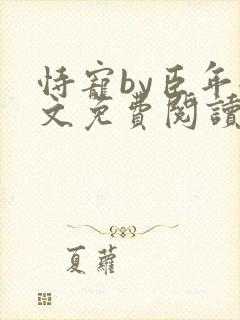 恃寵by臣年
文免費閱讀
夏蘿